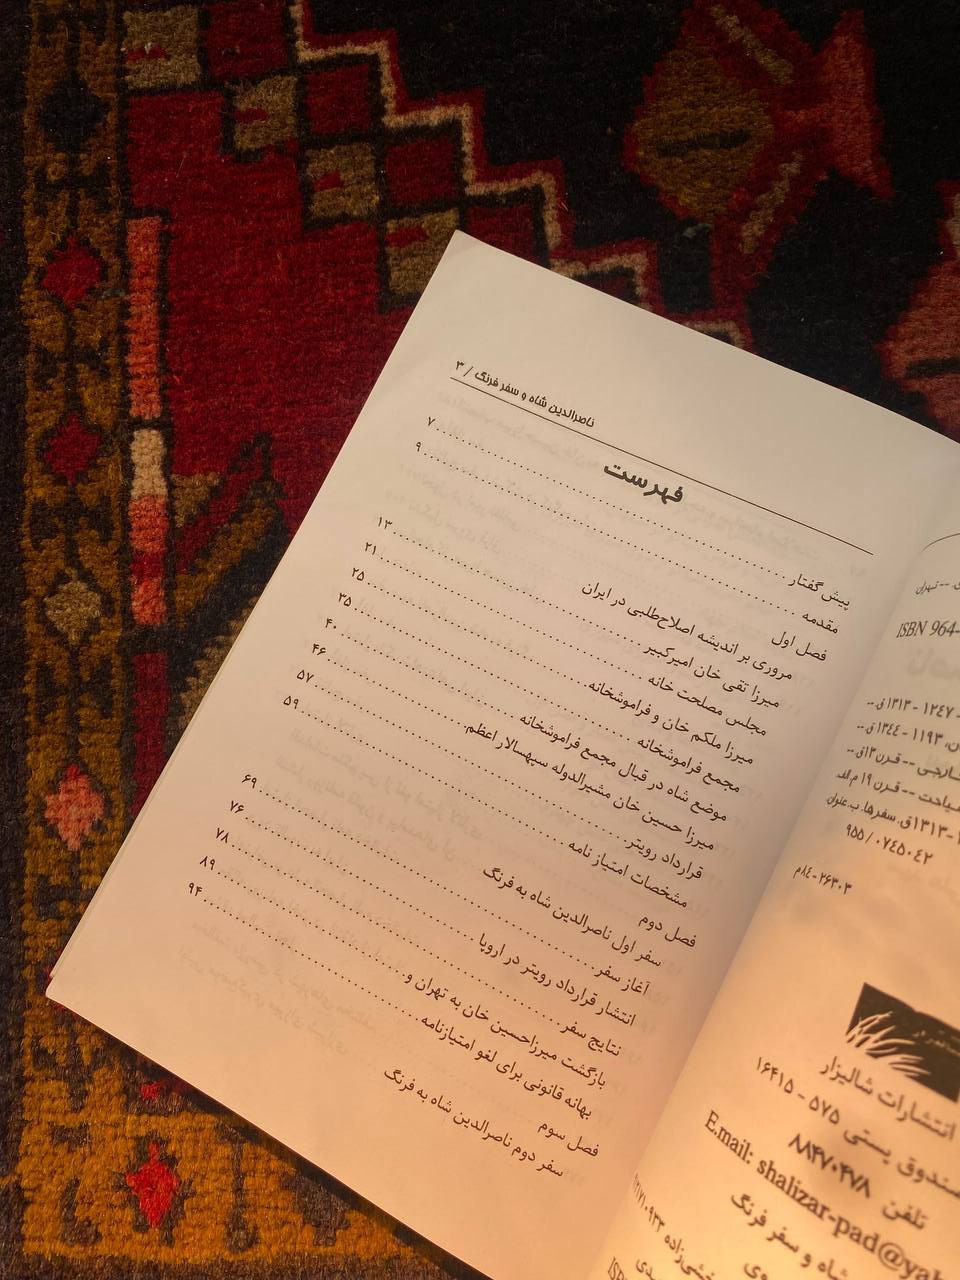 ناصرالدین شاه و سفر فرنگ / ۳
فهرست
پیش گفتار ........ ۷
مقدمه ........ ۹
فصل اول
مروری بر اندیشه اصلاح‌طلبی در ایران
میرزا تقی خان امیرکبیر ........ ۱۳
مجلس مصلحت خانه ........ ۲۱
میرزا ملکم خان و فراموشخانه ........ ۲۵
مجمع فراموشخانه ........ ۳۵
موضع شاه در قبال مجمع فراموشخانه ........ ۴۰
میرزا حسین خان مشیرالدوله سپهسالار اعظم ........ ۴۶
قرارداد رویتر ........ ۵۷
مشخصات امتیاز نامه ........ ۵۹
فصل دوم
سفر اول ناصرالدین شاه به فرنگ
آغاز سفر ........ ۶۹
انتشار قرارداد رویتر در اروپا ........ ۷۶
نتایج سفر ........ ۷۸
بازگشت میرزاحسین خان به تهران و ........ ۸۹
بهانه قانونی برای لغو امتیازنامه ........ ۹۴
فصل سوم
سفر دوم ناصرالدین شاه به فرنگ
-- تهران
ISBN 964-
۱۲۴۷ - ۱۳۱۳ق. --
۱۱۹۳ - ۱۳۴۴ق. --
خارجی -- قرن ۱۳ق. --
سیاحت -- قرن ۱۹م. الف.
-۱۳۱۳ق. سفرها. ب. عنوان
۹۵۵/۰۷۴۵۰۴۲
۸۴-۲۶۳۰۳م
انتشارات شالیزار
صندوق پستی ۵۷۵ - ۱۶۴۱۵
تلفن ۸۸۴۷۰۴۷۸
E.mail: shalizar-pad@yah
شاه و سفر فرنگ